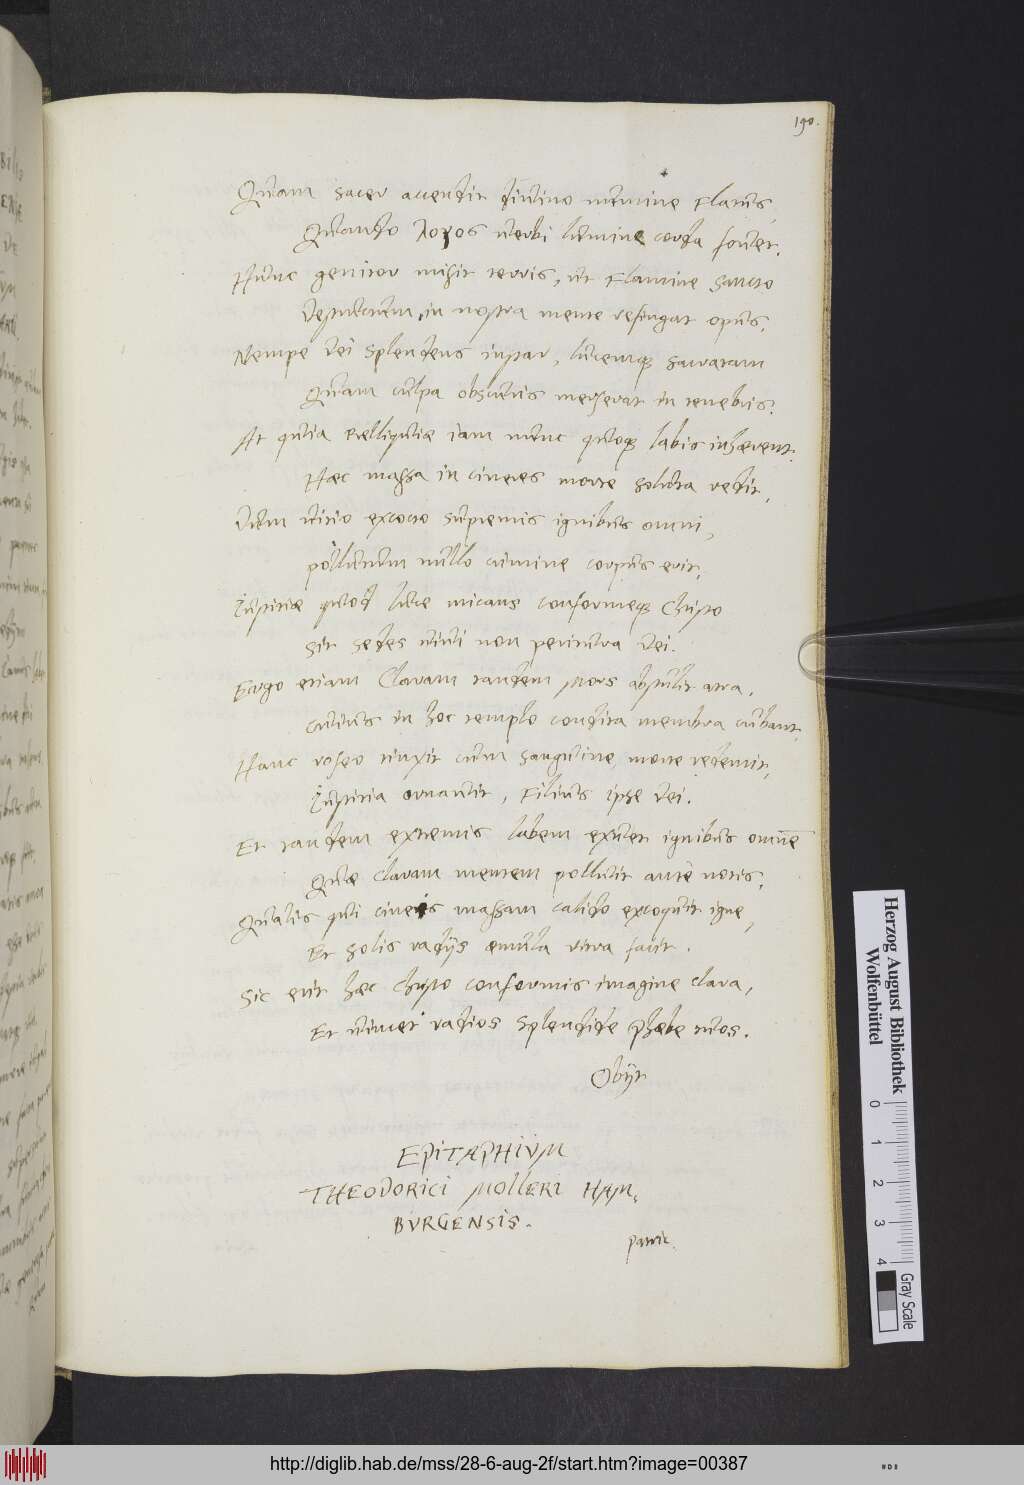 190.
Quam sacer accendit divino numine flatus,
Quando λογος verbi lumine corda fovet.
Hunc genitor misit terris, ut Flamine sancto
Destructum in nostra mente refingat opus.
Nempe Dei splendens instar, lucemq́ sacratam
Quam culpa obscuris merserat in tenebris.
At quia relliquiæ iam nunc quoq́ labis inhærent.
Hæc massa in cineres morte soluta redit,
Dum vitio excocto supremis ignibus omni,
pollutum nullo crimine corpus erit,
Iustitiæ quod luce micans conformeq́ Christo
Sit sedes vivi non peritura Dei.
Ergo etiam Claram tandem mors abstulit atra,
Cuius in hoc templo condita membra cubant.
Hanc roseo tinxit cum sanguine, morte redemit,
Iustitia ornavit, Filius ipse Dei.
Et tandem extremis labem exuet ignibus omnē
Quæ claram mentem polluit ante notis.
Qualis qui cineris massam calido excoquit igne,
Et solis radijs æmula vitra facit.
Sic erit hæc Christo conformis imagine clara,
Et vincet radios splendide phœbe tuos.
Obijt
EPITAPHIUM
THEODORICI MOLLERI HAM,
BURGENSIS.
patric.
Herzog August Bibliothek
Wolfenbüttel
0 1 2 3 4
Gray Scale
http://diglib.hab.de/mss/28-6-aug-2f/start.htm?image=00387